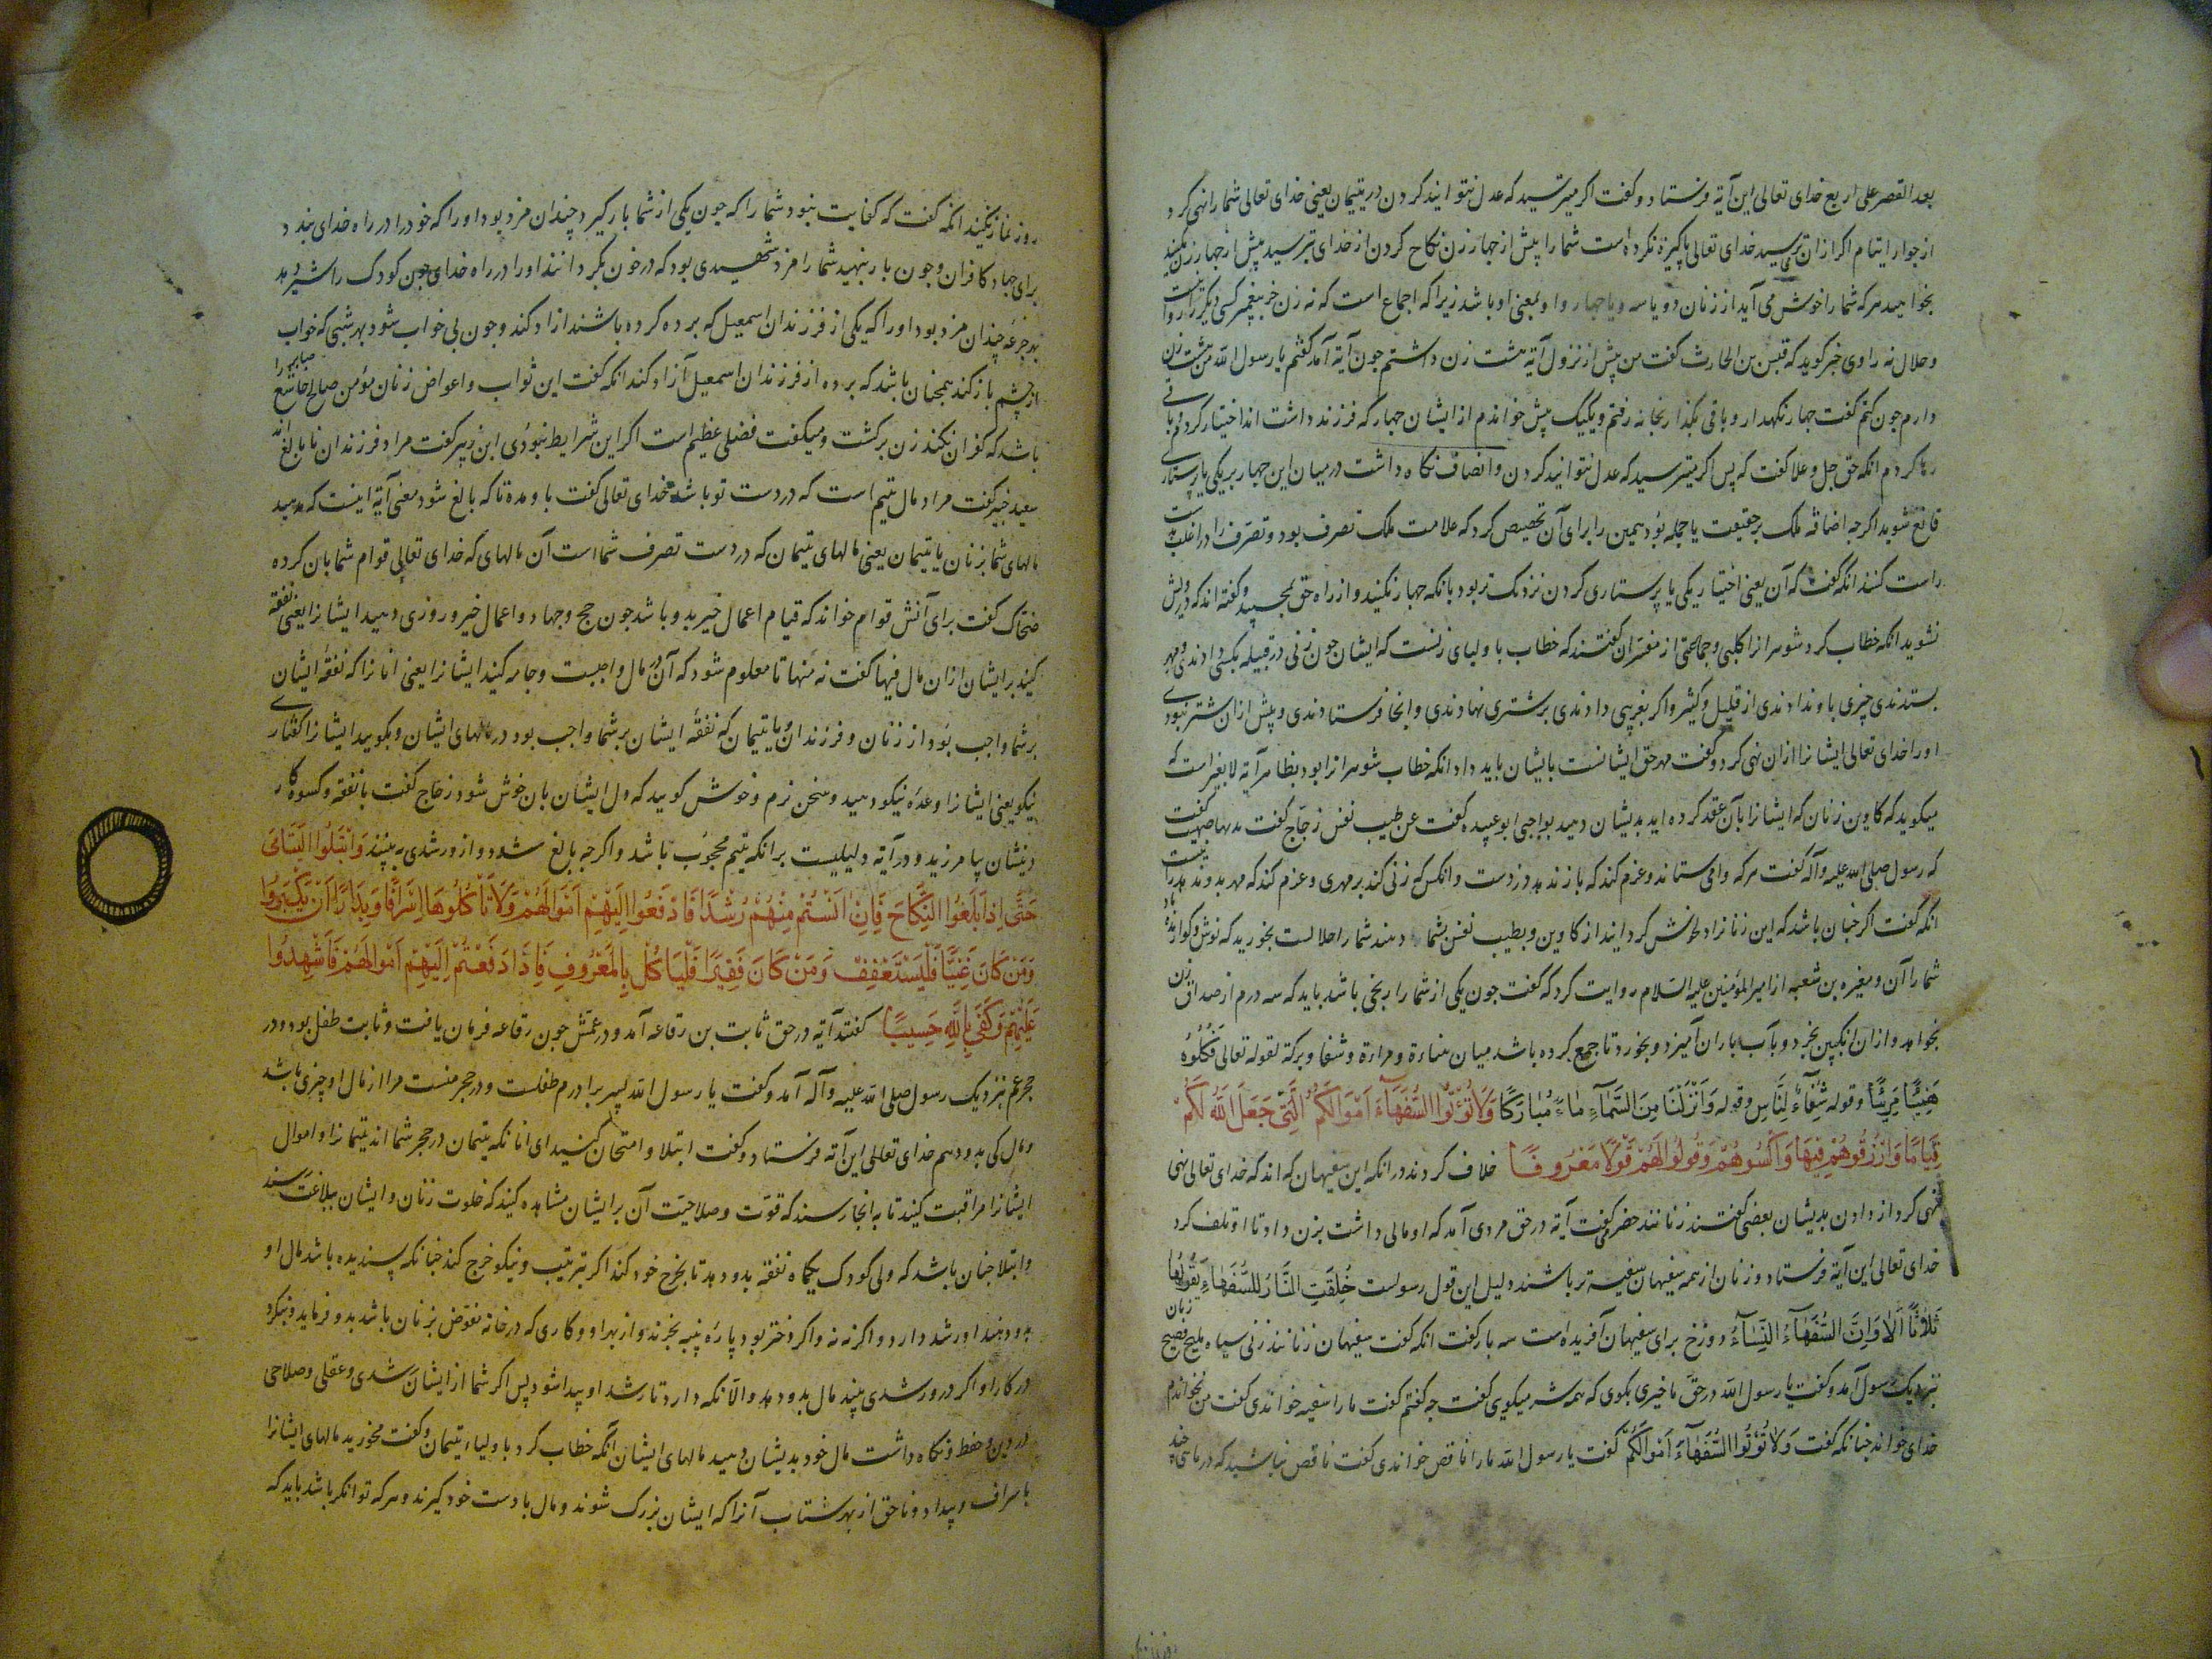 بعد القصر علی اربع خدای تعالی این آیة فرستاد و گفت اکر میترسید که عدل نتوانید کردن در یتیمان یعنی خدای تعالی شما را نهی کرد
از جوار ایتام اکر ازان ترسید خدای تعالی پاکیزه نکرده است شما را پیش از جهار زن نکاح کردن از خدای بترسید پیش از جهار زن مکنید
بخواهید هرکه شما را خوش می آید از زنان دو یا سه و یا جهار و او بمعنی او باشد زیرا که اجماع است که نه زن جز پیغمبر کسی دیکر را روا نیست
و حلال نه راوی خبر کوید که قیس بن الحارث کفت من پیش از نزول آیة هشت زن داشتم جون آیة آمد کفتم یا رسول الله من هشت زن
دارم جون کنم کفت جهار نکهدار و باقی بکذار بخانه رفتم و یکیک پیش خواندم از ایشان جهار که فرزند داشت اختیار کردم و باقی
رها کردم انکه حق جل و علا کفت که پس اکر میترسید که عدل نتوانید کردن و انصاف نکاه داشت در میان این جهار بر یکی یا پرستاری
قانع شوید اکرجه اضافه ملک بر حقیقت با جمله بود یمین را برای آن تخصیص کرد که علامت ملک تصرف بود و تصرف را در اغلب بدست
راست کنند انکه کفت که آن یعنی اختیار یکی یا پرستاری کردن نزدیک تر بود بانکه جهار نکنید و از راه حق بمجسپید و کفته اند که درویش
نشوید انکه خطاب کرد شوهرانرا کلبی و جماعتی از مفسران کفتند که خطاب با اولیای زنست که ایشان جون زنی در قبیله بکسی دادندی مهر
بستدندی چیزی باو ندادندی از قلیل و کثیر و اکر بغریبی دادندی بر شتری نهادندی و آنجا فرستادندی و بیش ازان شتر نبودی
او را خدای تعالی ایشانرا ازان نهی کرد و کفت مهر حق ایشانست بایشان باید داد انکه خطاب شوهرانرا بود بظاهر آیة لایق‌تر است که
میکوید که کاوین زنان که ایشانرا بآن عقد کرده اید بدیشان دهید بواجبی ابو عبیده کفت عن طیب نفس زجاج کفت
که رسول صلی الله علیه و آله کفت هرکه وامی ستاند و عزم کند که باز ندهد دزدست و انکس که زنی کند بر مهری و عزم کند که مهر بدو ندهد
انکه کفت اکر جنان باشد که این زنانرا دلخوش کردانید از کاوین و بطیب نفس بشما دهند شما را حلالست بخورید که نوش و کوارنده باد
شما را آن و مغیره بن شعبه از امیر المؤمنین علیه السلام روایت کرد که کفت جون یکی از شما را رنجی باشد باید که سه درم از صداق زن
بخواهد و ازان انکبین بخرد و بآب باران آمیزد و بخورد تا جمع کرده باشد میان هناءة و مراءة و شفا و برکة لقوله تعالی فَكُلُوهُ
هَنِيئًا مَرِيئًا و قوله شِفَآءٌ لِلنَّاسِ و قوله وَاَنْزَلْنَا مِنَ السَّمَآءِ مَاءً مُبَارَكًا وَلَا تُؤْتُوا السُّفَهَآءَ اَمْوَالَكُمُ الَّتِي جَعَلَ اللَّهُ لَكُمْ
قِيَامًا وَارْزُقُوهُمْ فِيهَا وَاكْسُوهُمْ وَقُولُوا لَهُمْ قَوْلًا مَعْرُوفًا خلاف کردند در انکه این سفیهان که اند که خدای تعالی نهی
نهی کرد از دادن بدیشان بعضی کفتند زنانند حضرمی کفت آیة در حق مردی آمد که او مالی داشت بزن داد تا او تلف کرد
خدای تعالی این آیة فرستاد و زنان از همه سفیهان سفیه تر باشند و دلیل این قول رسولست خُلِقَتِ النَّارُ لِلسُّفَهَاءِ يَقُولُهَا
ثَلَاثًا اَلَا وَاِنَّ السُّفَهَآءَ النِّسَآءُ دوزخ برای سفیهان آفریده است سه بار کفت انکه کفت سفیهان زنانند زنی سیاه ملیح فصیح زبان
نزدیک رسول آمد و کفت یا رسول الله در حق ما خیری بکوی که همه شر میکویی کفت جه کفتم کفت ما را سفیه خواندی کفت من نخواندم
خدای خواند جنانکه کفت وَلَا تُؤْتُوا السُّفَهَآءَ اَمْوَالَكُمْ کفت یا رسول الله ما را ناقص خواندی کفت ناقص نباشید که در ماهی چند
روز نماز نکنید انکه کفت که کفایت نبود شما را که جون یکی از شما بار کیرد چندان مزد بود او را که خود را در راه خدای ببندد
برای جهاد کافران و جون بار بنهید شما را مزد شهیدی بود که در خون بکردانند او را در راه خدای جون کودک را شیر دهد
بهر جرعه چندان مزد بود او را که یکی از فرزندان اسمعیل که برده کرده باشند ازاد کند و جون بی خواب شود بهر شبی که خواب
از چشم باز کند همجنان باشد که برده از فرزندان اسمعیل آزاد کند انکه کفت این ثواب و اعواض زنان مؤمن صالح خاشع صابر را
باشد که کفران نکند زن برکشت و میکفت فضلی عظیم است اکر این شرایط نبودی کفت مراد فرزندان نابالغ اند
سعید جبیر کفت مراد مال یتیم است که در دست تو باشد خدای تعالی کفت باو مده تا که بالغ شود معنی آیة اینست که مدهید
مالهای شما بزنان یا یتیمان یعنی مالهای یتیمان که در دست تصرف شما است آن مالهای که خدای تعالی قوام شما بان کرده
ضحاک کفت برای آنش قوام خواند که قیام اعمال خیر بدو باشد جون حج و جهاد و اعمال خیر و روزی دهید ایشانرا یعنی نفقه
کنید بر ایشان ازان مال فیها کفت نه منها تا معلوم شود که آن در مال واجبست و جامه کنید ایشانرا یعنی انانرا که نفقه ایشان
بر شما واجب بود از زنان و فرزندان یا یتیمان که نفقه ایشان بر شما واجب بود در مالهای ایشان و بکویید ایشانرا کفتاری
نیکو یعنی ایشانرا وعده نیکو دهید و سخن نرم و خوش کویید که دل ایشان بان خوش شود زجاج کفت با نفقه و کسوه کار
دینشان بیاموزید و در آیة دلیلیست بر انکه یتیم محجوب باشد و اکرجه بالغ شود و ازو رشدی نبینند وَابْتَلُوا الْيَتَامَى
حَتَّى اِذَا بَلَغُوا النِّكَاحَ فَاِنْ آنَسْتُمْ مِنْهُمْ رُشْدًا فَادْفَعُوا اِلَيْهِمْ اَمْوَالَهُمْ وَلَا تَأْكُلُوهَا اِسْرَافًا وَبِدَارًا اَنْ يَكْبَرُوا
وَمَنْ كَانَ غَنِيًّا فَلْيَسْتَعْفِفْ وَمَنْ كَانَ فَقِيرًا فَلْيَأْكُلْ بِالْمَعْرُوفِ فَاِذَا دَفَعْتُمْ اِلَيْهِمْ اَمْوَالَهُمْ فَاَشْهِدُوا
عَلَيْهِمْ وَكَفَى بِاللَّهِ حَسِيبًا کفتند آیة در حق ثابت بن رفاعه آمد و در عمش جون رفاعه فرمان یافت و ثابت طفل بود و در
حجر عم بنزدیک رسول صلی الله علیه و آله آمد و کفت یا رسول الله پسر برادرم طفلست و در حجر منست مرا از مال او چیزی باشد
و مال کی بدو دهم خدای تعالی این آیة فرستاد و کفت ابتلا و امتحان کنید ای انانکه یتیمان در حجر شما اند یتیمانرا و اموال
ایشانرا مراقبت کنید تا به انجا رسند که قوت و صلاحیت آن بر ایشان مشاهده کنید که خلوت زنان و ایشان ببلاغت رسند
و ابتلا جنان باشد که ولی کودک یکماه نفقه بدو دهد تا بخرج خود کند اکر بترتیب و نیکو خرج کند جنانکه پسندیده باشد مال او
بدو دهند او رشد دارد و اکر نه نه و اکر دختر بود پاره پنبه بخرند و از بهر او و کاری که در خانه مفوض بزنان باشد بدو فرماید و بنکرد
در کار او اکر درو رشدی بیند مال بدو دهد و الا نکه دارد تا رشد او پیدا شود پس اکر شما از ایشان رشدی و عقلی و صلاحی
در دین و حفظ و نکاه داشت مال خود بدیشان دهید مالهای ایشان انکه خطاب کرد با ولیاء یتیمان و کفت مخورید مالهای ایشانرا
باسراف و بیداد و ناحق از بهر شتاب آنرا که ایشان بزرک شوند و مال با دست خود کیرند و هرکه توانکر باشد باید که